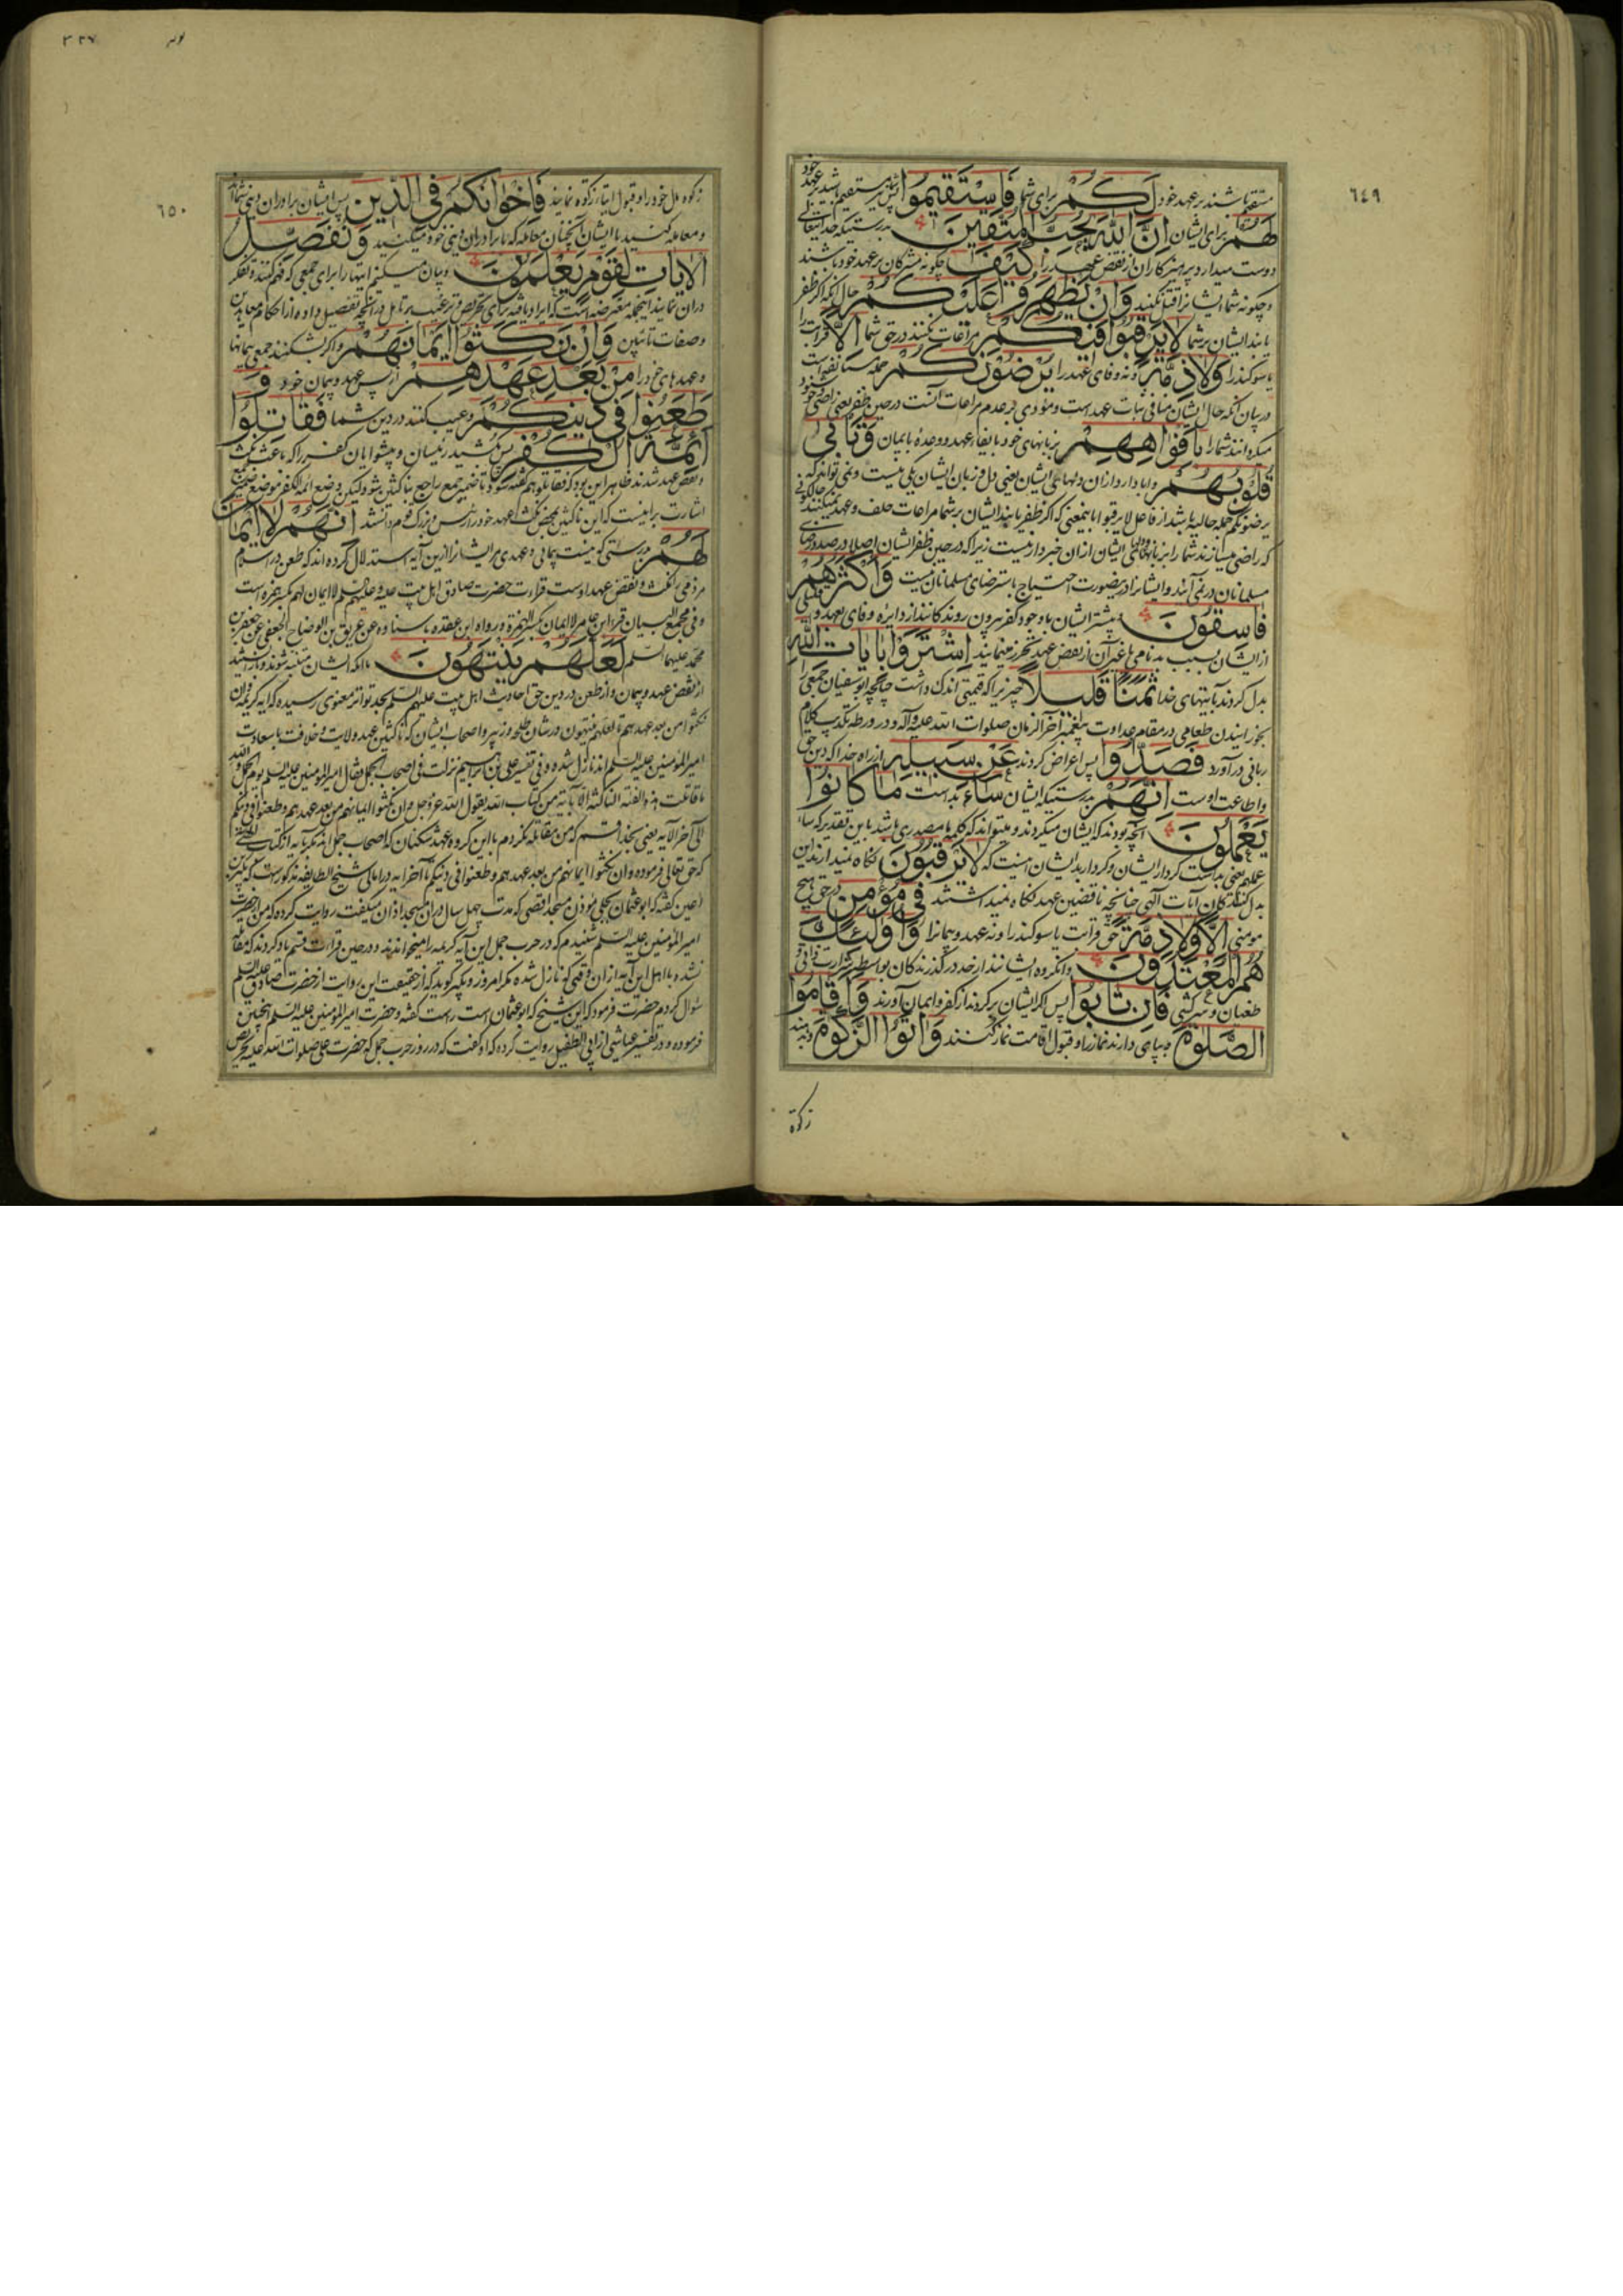 ٦٤٩
مستقیم باشند بر عهد خود لَكُمْ برای شما فَاسْتَقِيمُوا پس مستقیم باشید بر عهد خود
لَهُمْ برای ایشان اِنَّ اللّٰهَ يُحِبُّ الْمُتَّقِينَ بدرستیکه خدایتعالی
دوست میدارد پرهیزکاران از نقض عهد را كَيْفَ چگونه مشرکان بر عهد خود باشند
و چگونه شما ایشانرا قتل نکنید وَاِنْ يَظْهَرُوا عَلَيْكُمْ حال آنکه اگر ظفر
یابند ایشان بر شما لَا يَرْقُبُوا فِيكُمْ مراعات نکنند در حق شما اِلًّا قرابت را
یا سوکند را وَلَا ذِمَّةً و نه وفای عهد را يُرْضُونَكُمْ جمله مستأنفه است
در بیان آنکه حال ایشان منافی ثبات عهد است و مؤدی بر عدم مراعات آنست در حین ظفر یعنی راضی و خوشنود
میکردانند شما را بِاَفْوَاهِهِمْ بزبانهای خود بایفاء عهد و وعدهٔ بایمان وَتَاْبٰى
قُلُوبُهُمْ و ابا دارد از ان دلهای ایشان یعنی دل و زبان ایشان یکی نیست و نمی تواند که
یرضونکم جمله حالیه باشد از فاعل لا یرقبوا باینمعنی که اگر ظفر یابند ایشان بر شما مراعات حلف و عهد نمیکنند
که راضی میسازند شما را بزبانها و دلهای ایشان از ان خبردار نیست زیرا که در حین ظفر ایشان اصلا در صدد رضای
مسلمانان در نمی آیند و ایشانرا در ینصورت احتیاج باسترضای مسلمانان نیست وَاَكْثَرُهُمْ
فَاسِقُونَ و بیشتر ایشان با وجود کفر بیرون روندکانند از دایره وفای بعهد و
از ایشان بسبب بدنامی یا غیر آن از نقض عهد تحرز مینمایند اِشْتَرَوْا بِاٰيَاتِ اللّٰهِ
بدل کردند بآیتهای خدا ثَمَنًا قَلِيلًا چیزیرا که قیمتی اندک داشت چنانچه ابو سفیان جمعی را
بخورانیدن طعامی در مقام عداوت پیغمبر آخر الزمان صلوات الله علیه و آله و در ورطه تکذیب کلام
ربانی در آورد فَصَدُّوا پس اعراض کردند عَنْ سَبِيلِهِ از راه خدا که دین حق
و اطاعت اوست اِنَّهُمْ بدرستیکه ایشان سَاءَ بد است مَا كَانُوا
يَعْمَلُونَ آنچه بودند که ایشان میکردند و میتواند که کلمه ما مصدری باشد باین تقدیر که ساء
عملهم یعنی بد است کردار ایشان و کردار بد ایشان اینست که لَا يَرْقُبُونَ نگاه نمیدارند این
بدل کنندگان آیات الهی چنانچه ناقضین عهد نگاه نمیداشتند فِي مُؤْمِنٍ در حق هیچ
مومنی اِلًّا وَلَا ذِمَّةً حق قرابت یا سوکند را و نه عهد و پیمانرا وَاُولٰئِكَ
هُمُ الْمُعْتَدُونَ و آنگروه ایشانند از حد در گذرندکان بواسطه شرارت ذاتی و
طغیان و سرکشی فَاِنْ تَابُوا پس اگر ایشان برکردند از کفر و ایمان آورند وَاَقَامُوا
الصَّلٰوةَ و بپای دارند نماز را و قبول اقامت نماز کنند وَاٰتَوُا الزَّكٰوةَ و بدهند
زکوة
٦٥٠
٣٢٧
زکوه مال خود را و قبول ایتاء زکوة نمایند فَاِخْوَانُكُمْ فِي الدِّينِ پس ایشان برادران دینی شمااند
و معامله کنید با ایشان آنچنان معامله که با برادران دینی خود میکنید وَنُفَصِّلُ
الْاٰيَاتِ لِقَوْمٍ يَعْلَمُونَ و بیان میکنیم آیتها را برای جمعی که فهم کنند و تفکر
دران نمایند اینجمله معترضه است که ایراد یافته برای تحریص و ترغیب بر تامل در آنچه تفصیل داده از احکام معاهدین
و صفات تائبین وَاِنْ نَكَثُوا اَيْمَانَهُمْ و اگر بشکنند جمعی پیمانها
و عهدهای خود را مِنْ بَعْدِ عَهْدِهِمْ از پس عهد و پیمان خود وَ
طَعَنُوا فِي دِينِكُمْ و عیب کنند در دین شما فَقَاتِلُوا
اَئِمَّةَ الْكُفْرِ پس بکشید رئیسان و پیشوایان کفر را که باعث نکث
و نقض عهد شدند ظاهر این بود که فقاتلوهم گفته شود تا ضمیر جمع راجع بناکثین شود ولیکن وضع ائمة الکفر موضع ضمیر جمع
اشارت بر اینست که این ناکثین بمحض نکث عهد خود را رئیس و بزرک قوم دانند اِنَّهُمْ لَا اَيْمَانَ
لَهُمْ بدرستی که نیست پیمانی و عهدی ایشانرا ازین آیه استدلال کرده اند که طعن در اسلام
مر ذمی را نکث و نقض عهد اوست قراءت حضرت صادق اهل بیت علیه و علیهم السلم لا ایمان لهم بکسر همزه است
و فی مجمع البیان قرء ابن عامر لا ایمان بکسر الهمزة و رواه ابن عقده باسناده عن عریف بن الوضاح الجعفی عن جعفر بن
محمد علیهما السلم لَعَلَّهُمْ يَنْتَهُونَ تا آنکه ایشان متنبه شوند و باز ایستند
از نقض عهد و پیمان و از طعن در دین حق احادیث اهل بیت علیهم السلم بحد تواتر معنوی رسیده که آیه کریمه و ان
نکثوا من بعد عهدهم تا لعلهم ینتهون در شان طلحه و زبیر و اصحاب ایشان که ناکثین عهد ولایت و خلافت با سعادت
امیر المؤمنین علیه السلم اند نازل شده و فی تفسیر علی بن ابراهیم نزلت فی اصحاب الجمل فقال امیر المؤمنین علیه السلم یوم الجمل و الله
ما قاتلت هذه الفئة الناکثة الا بآیة من کتاب الله یقول الله عز و جل و ان نکثوا ایمانهم من بعد عهدهم و طعنوا فی دینکم
الی آخر الآیه یعنی بخدا قسم که من مقاتله نکردم با این کروه عهد شکنان که اصحاب جمل اند مکر بآیه از کتاب
که حق تعالی فرموده و ان نکثوا ایمانهم من بعد عهدهم و طعنوا فی دینکم تا آخر آیه در امالی شیخ الطایفه مذکورست که
اعین گفته که ابو عثمان بجلی مؤذن مسجد اقصی که مدت چهل سال دران مسجد اذان میگفت روایت کرده که من از حضرت
امیر المؤمنین علیه السلم شنیدم که در حرب جمل این آیه کریمه را میخواندند و در حین قراءت قسم یاد کردند که مقاتله
نشده با اهل این آیه از ان وقتی که نازل شده مکر امروز و بکیر کوید که از حقیقت این روایت از حضرت صادق علیه السلم
سؤال کردم حضرت فرمود که این شیخ که ابو عثمان است راست گفته و حضرت امیر المؤمنین علیه السلم اینچنین
فرموده و در تفسیر عیاشی از ابی الطفیل روایت کرده که او گفت که در روز حرب جمل که حضرت علی صلوات الله علیه تحریص